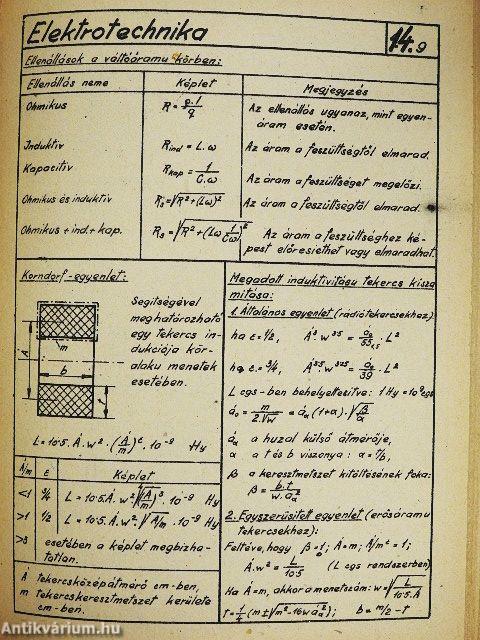 Elektrotechnika 14.9
Ellenállások a váltóáramu körben:
Ellenállás neme Képlet Megjegyzés
Ohmikus R = ϱ.l/q Az ellenállás ugyanaz, mint egyen-
áram esetén.
Induktiv Rind = L.ω Az áram a feszültségtől elmarad.
Kapacitiv Rkap = 1/C.ω Az áram a feszültséget megelőzi.
Ohmikus és induktiv Rs = √R²+(Lω)² Az áram a feszültségtől elmarad.
Ohmikus + ind. + kap. Rs = √R²+(Lω 1/Cω)² Az áram a feszültséghez ké-
pest előresiethet vagy elmaradhat.
Korndorf-egyenlet:
Segitségével
meghatározható
egy tekercs in-
dukciója kör-
alaku menetek
esetében.
A
m
b
t
L = 10·5. Á. w². (Á/m)^ε. 10⁻⁹ Hy
Á/m ε Képlet
<1 3/4 L = 10·5. Á. w² ⁴√(Á/m)³. 10⁻⁹ Hy
>1 1/2 L = 10·5. Á. w². √Á/m. 10⁻⁹ Hy
>3 esetében a képlet megbizha-
tatlan.
Á tekercsközépátmérő cm-ben,
m tekercskeresztmetszet kerülete
cm-ben.
Megadott induktivitágu tekercs kiszá
mitása:
1. Általános egyenlet (rádiótekercsekhez):
ha ε = 1/2,
ha ε = 3/4,
L cgs-ben behelyettesitve: 1 Hy = 10⁹ cgs
á₀ = m/2.√w = áα (1+α). √β/α
áα a huzal külső átmérője,
α a t és b viszonya : α = t/b,
β a keresztmetszet kitöltésének foka:
β = b.t/w.aα²
2. Egyszerüsitett egyenlet (erősáramu
tekercsekhez):
Feltéve, hogy β = 1; Á = m; Á/m^ε = 1;
Á.w² = L/10·5 (L cgs rendszerben)
Ha Á = m, akkor a menetszám: w = √L/10·5.Á
t = 1/4 (m ± √m²-16wáα²); b = m/2 - t
Antikvárium.hu